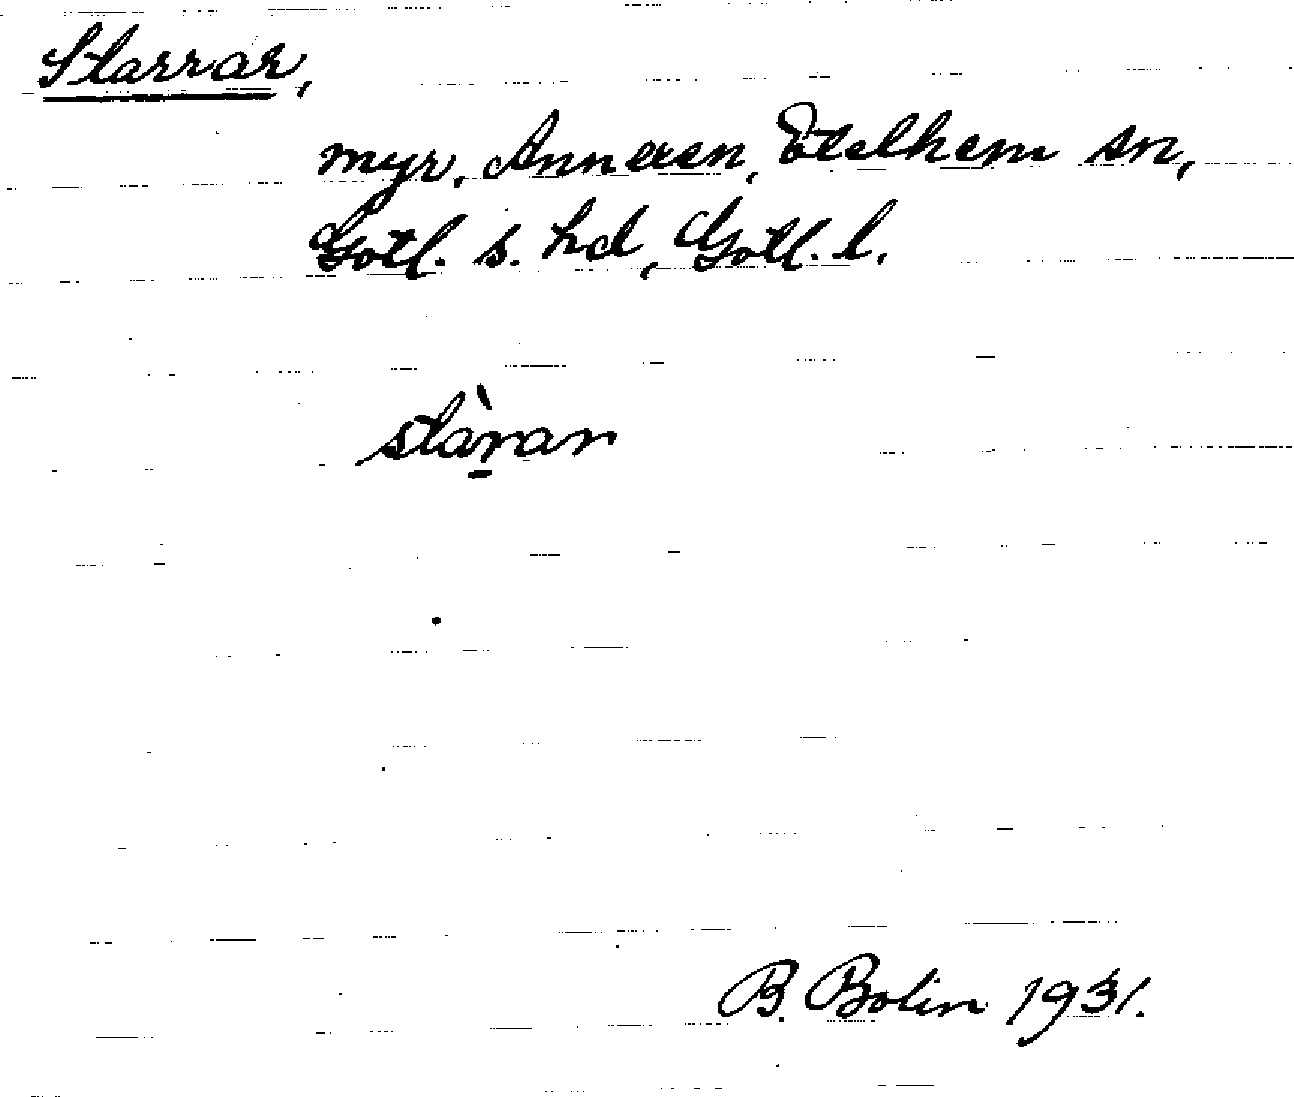 Starrar,
myr, Anneren, Etelhem sn,
Gotl. s. hd, Gotl. l.
stàr̲ar
B. Bolin 1931.